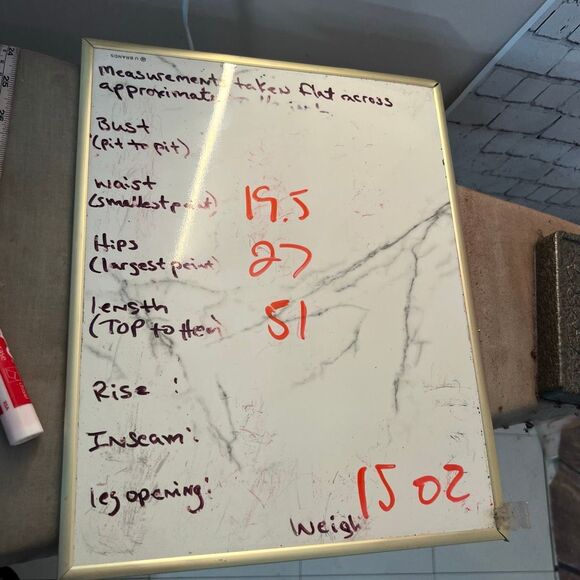 U BRANDS
Measurements taken flat across
approximate
Bust
(pit to pit)
waist
(smallest point) 19.5
Hips
(largest point) 27
length
(TOP to Hem) 51
Rise :
Inseam:
leg opening:
15 oz
Weigh
24
25
26